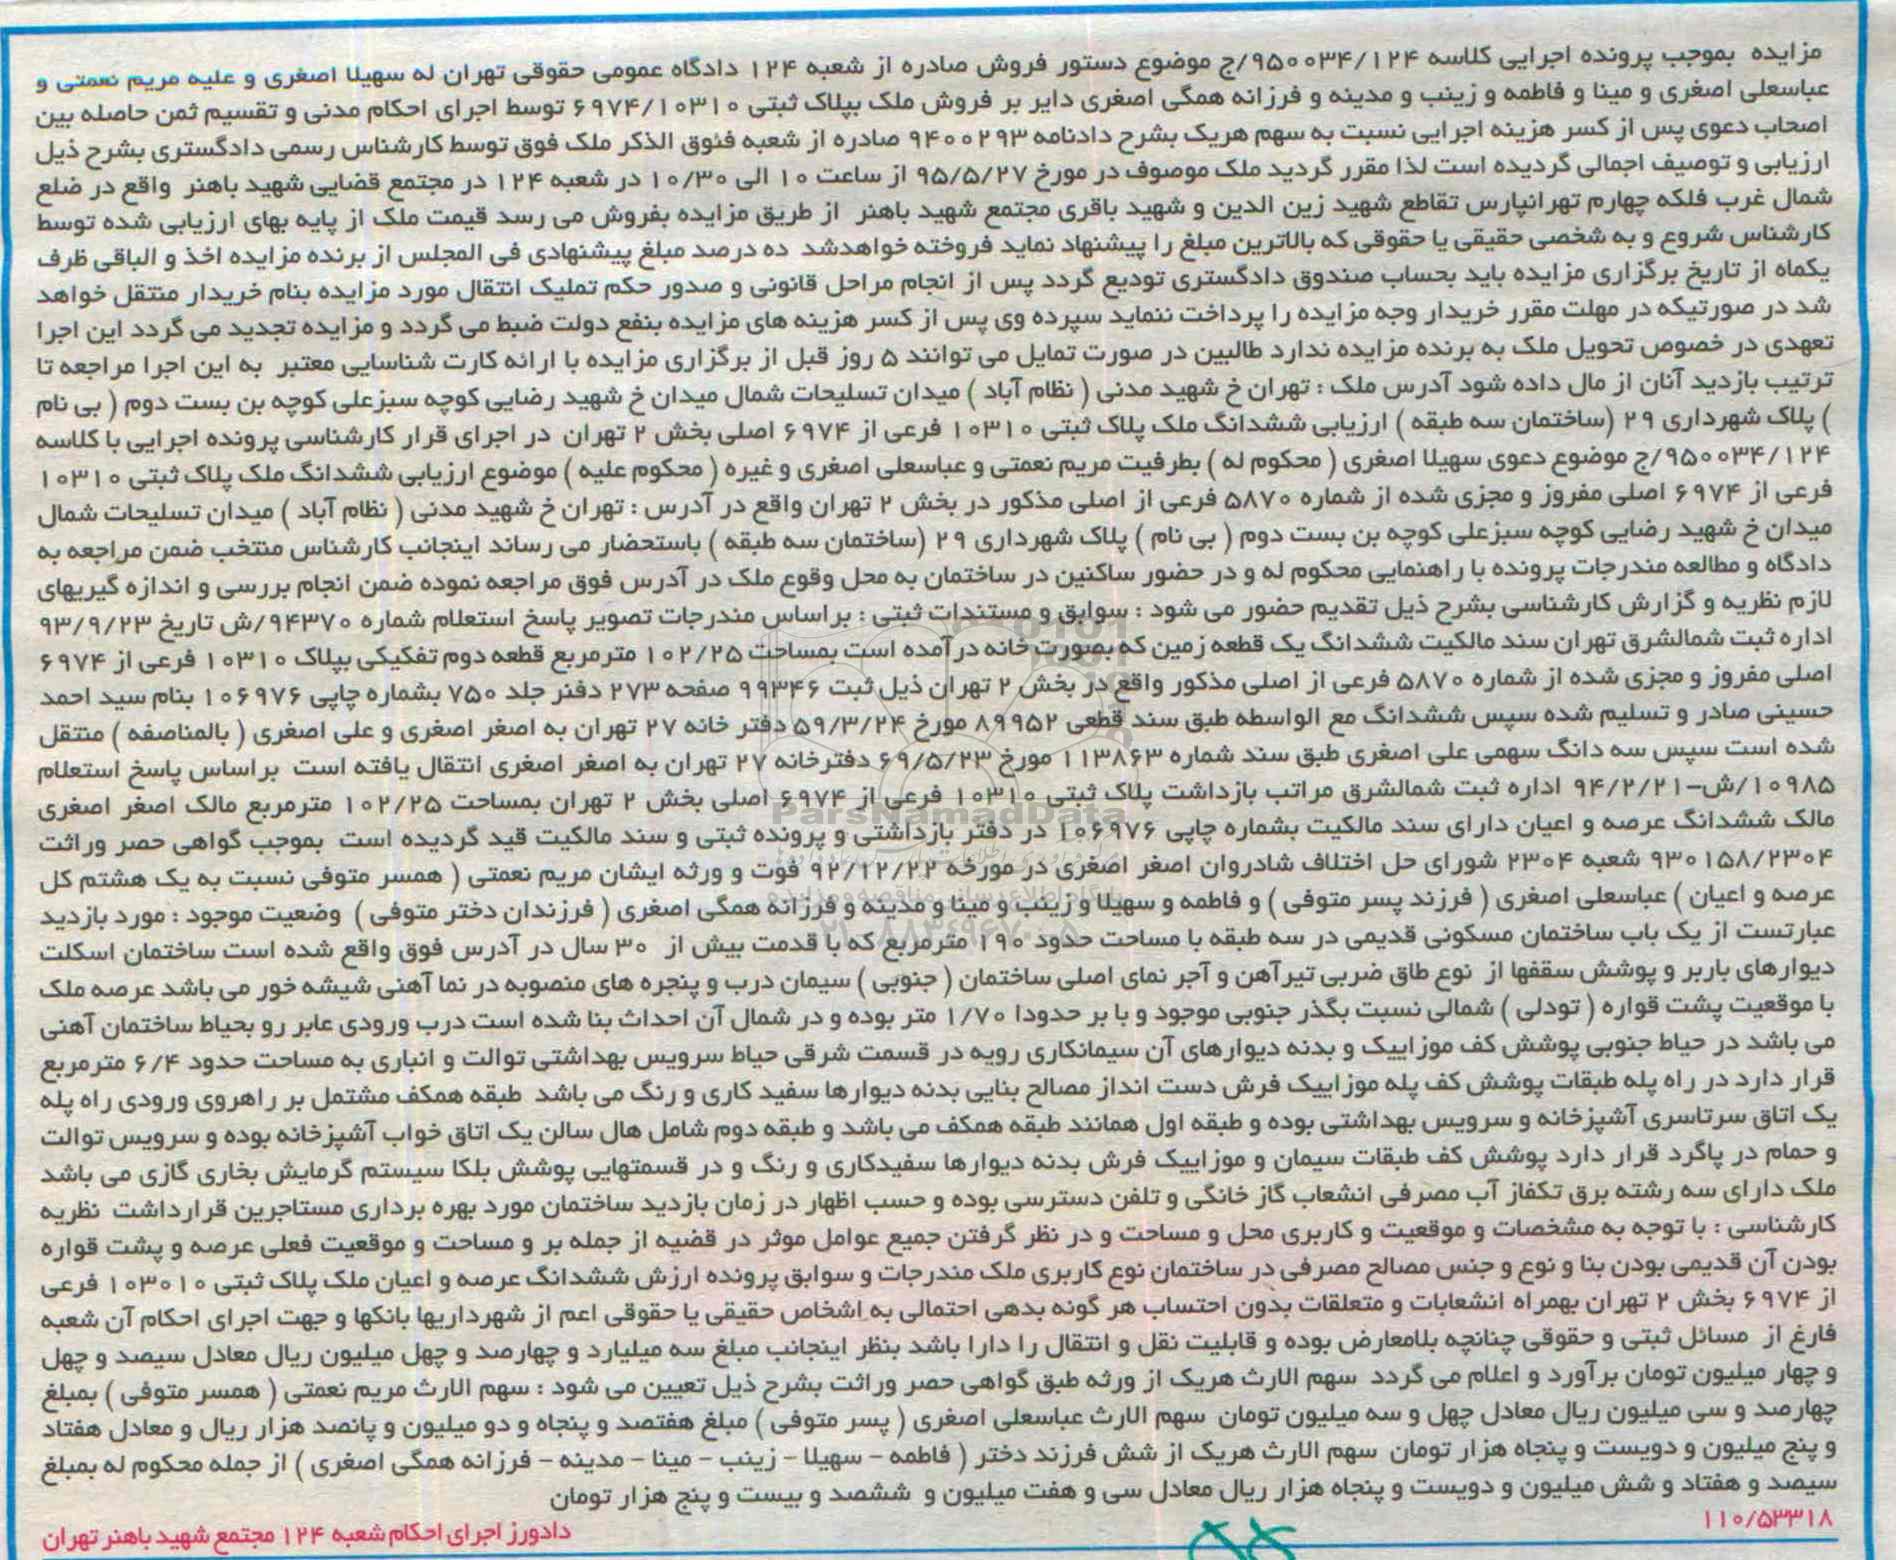 مزایده بموجب پرونده اجرایی کلاسه ۹۵۰۰۳۴/۱۲۴/ج موضوع دستور فروش صادره از شعبه ۱۲۴ دادگاه عمومی حقوقی تهران له سهیلا اصغری و علیه مریم نعمتی و
عباسعلی اصغری و مینا و فاطمه و زینب و مدینه و فرزانه همگی اصغری دایر بر فروش ملک بپلاک ثبتی ۶۹۷۴/۱۰۳۱۰ توسط اجرای احکام مدنی و تقسیم ثمن حاصله بین
اصحاب دعوی پس از کسر هزینه اجرایی نسبت به سهم هریک بشرح دادنامه ۹۴۰۰۲۹۳ صادره از شعبه فئوق الذکر ملک فوق توسط کارشناس رسمی دادگستری بشرح ذیل
ارزیابی و توصیف اجمالی گردیده است لذا مقرر گردید ملک موصوف در مورخ ۹۵/۵/۲۷ از ساعت ۱۰ الی ۱۰/۳۰ در شعبه ۱۲۴ در مجتمع قضایی شهید باهنر واقع در ضلع
شمال غرب فلکه چهارم تهرانپارس تقاطع شهید زین الدین و شهید باقری مجتمع شهید باهنر از طریق مزایده بفروش می رسد قیمت ملک از پایه بهای ارزیابی شده توسط
کارشناس شروع و به شخصی حقیقی یا حقوقی که بالاترین مبلغ را پیشنهاد نماید فروخته خواهدشد ده درصد مبلغ پیشنهادی فی المجلس از برنده مزایده اخذ و الباقی ظرف
یکماه از تاریخ برگزاری مزایده باید بحساب صندوق دادگستری تودیع گردد پس از انجام مراحل قانونی و صدور حکم تملیک انتقال مورد مزایده بنام خریدار منتقل خواهد
شد در صورتیکه در مهلت مقرر خریدار وجه مزایده را پرداخت ننماید سپرده وی پس از کسر هزینه های مزایده بنفع دولت ضبط می گردد و مزایده تجدید می گردد این اجرا
تعهدی در خصوص تحویل ملک به برنده مزایده ندارد طالبین در صورت تمایل می توانند ۵ روز قبل از برگزاری مزایده با ارائه کارت شناسایی معتبر به این اجرا مراجعه تا
ترتیب بازدید آنان از مال داده شود آدرس ملک : تهران خ شهید مدنی ( نظام آباد ) میدان تسلیحات شمال میدان خ شهید رضایی کوچه سبزعلی کوچه بن بست دوم ( بی نام
) پلاک شهرداری ۲۹ (ساختمان سه طبقه ) ارزیابی ششدانگ ملک پلاک ثبتی ۱۰۳۱۰ فرعی از ۶۹۷۴ اصلی بخش ۲ تهران در اجرای قرار کارشناسی پرونده اجرایی با کلاسه
۹۵۰۰۳۴/۱۲۴/ج موضوع دعوی سهیلا اصغری ( محکوم له ) بطرفیت مریم نعمتی و عباسعلی اصغری و غیره ( محکوم علیه ) موضوع ارزیابی ششدانگ ملک پلاک ثبتی ۱۰۳۱۰
فرعی از ۶۹۷۴ اصلی مفروز و مجزی شده از شماره ۵۸۷۰ فرعی از اصلی مذکور در بخش ۲ تهران واقع در آدرس : تهران خ شهید مدنی ( نظام آباد ) میدان تسلیحات شمال
میدان خ شهید رضایی کوچه سبزعلی کوچه بن بست دوم ( بی نام ) پلاک شهرداری ۲۹ (ساختمان سه طبقه ) باستحضار می رساند اینجانب کارشناس منتخب ضمن مراجعه به
دادگاه و مطالعه مندرجات پرونده با راهنمایی محکوم له و در حضور ساکنین در ساختمان به محل وقوع ملک در آدرس فوق مراجعه نموده ضمن انجام بررسی و اندازه گیریهای
لازم نظریه و گزارش کارشناسی بشرح ذیل تقدیم حضور می شود : سوابق و مستندات ثبتی : براساس مندرجات تصویر پاسخ استعلام شماره ۹۴۳۷۰/ش تاریخ ۹۳/۹/۲۳
اداره ثبت شمالشرق تهران سند مالکیت ششدانگ یک قطعه زمین که بصورت خانه درآمده است بمساحت ۱۰۲/۲۵ مترمربع قطعه دوم تفکیکی بپلاک ۱۰۳۱۰ فرعی از ۶۹۷۴
اصلی مفروز و مجزی شده از شماره ۵۸۷۰ فرعی از اصلی مذکور واقع در بخش ۲ تهران ذیل ثبت ۹۹۳۴۶ صفحه ۲۷۳ دفتر جلد ۷۵۰ بشماره چاپی ۱۰۶۹۷۶ بنام سید احمد
حسینی صادر و تسلیم شده سپس ششدانگ مع الواسطه طبق سند قطعی ۸۹۹۵۲ مورخ ۵۹/۳/۲۴ دفتر خانه ۲۷ تهران به اصغر اصغری و علی اصغری ( بالمناصفه ) منتقل
شده است سپس سه دانگ سهمی علی اصغری طبق سند شماره ۱۱۳۸۶۳ مورخ ۶۹/۵/۲۳ دفترخانه ۲۷ تهران به اصغر اصغری انتقال یافته است براساس پاسخ استعلام
۱۰۹۸۵/ش-۹۴/۲/۲۱ اداره ثبت شمالشرق مراتب بازداشت پلاک ثبتی ۱۰۳۱۰ فرعی از ۶۹۷۴ اصلی بخش ۲ تهران بمساحت ۱۰۲/۲۵ مترمربع مالک اصغر اصغری
مالک ششدانگ عرصه و اعیان دارای سند مالکیت بشماره چاپی ۱۰۶۹۷۶ در دفتر بازداشتی و پرونده ثبتی و سند مالکیت قید گردیده است بموجب گواهی حصر وراثت
۹۳۰۱۵۸/۲۳۰۴ شعبه ۲۳۰۴ شورای حل اختلاف شادروان اصغر اصغری در مورخه ۹۲/۱۲/۲۲ فوت و ورثه ایشان مریم نعمتی ( همسر متوفی نسبت به یک هشتم کل
عرصه و اعیان ) عباسعلی اصغری ( فرزند پسر متوفی ) و فاطمه و سهیلا و زینب و مینا و مدینه و فرزانه همگی اصغری ( فرزندان دختر متوفی ) وضعیت موجود : مورد بازدید
عبارتست از یک باب ساختمان مسکونی قدیمی در سه طبقه با مساحت حدود ۱۹۰ مترمربع که با قدمت بیش از ۳۰ سال در آدرس فوق واقع شده است ساختمان اسکلت
دیوارهای باربر و پوشش سقفها از نوع طاق ضربی تیرآهن و آجر نمای اصلی ساختمان ( جنوبی ) سیمان درب و پنجره های منصوبه در نما آهنی شیشه خور می باشد عرصه ملک
با موقعیت پشت قواره ( تودلی ) شمالی نسبت بگذر جنوبی موجود و با بر حدودا ۱/۷۰ متر بوده و در شمال آن احداث بنا شده است درب ورودی عابر رو بحیاط ساختمان آهنی
می باشد در حیاط جنوبی پوشش کف موزاییک و بدنه دیوارهای آن سیمانکاری رویه در قسمت شرقی حیاط سرویس بهداشتی توالت و انباری به مساحت حدود ۶/۴ مترمربع
قرار دارد در راه پله طبقات پوشش کف پله موزاییک فرش دست انداز مصالح بنایی بدنه دیوارها سفید کاری و رنگ می باشد طبقه همکف مشتمل بر راهروی ورودی راه پله
یک اتاق سرتاسری آشپزخانه و سرویس بهداشتی بوده و طبقه اول همانند طبقه همکف می باشد و طبقه دوم شامل هال سالن یک اتاق خواب آشپزخانه بوده و سرویس توالت
و حمام در پاگرد قرار دارد پوشش کف طبقات سیمان و موزاییک فرش بدنه دیوارها سفیدکاری و رنگ و در قسمتهایی پوشش بلکا سیستم گرمایش بخاری گازی می باشد
ملک دارای سه رشته برق تکفاز آب مصرفی انشعاب گاز خانگی و تلفن دسترسی بوده و حسب اظهار در زمان بازدید ساختمان مورد بهره برداری مستاجرین قرارداشت نظریه
کارشناسی : با توجه به مشخصات و موقعیت و کاربری محل و مساحت و در نظر گرفتن جمیع عوامل موثر در قضیه از جمله بر و مساحت و موقعیت فعلی عرصه و پشت قواره
بودن آن قدیمی بودن بنا و نوع و جنس مصالح مصرفی در ساختمان نوع کاربری ملک مندرجات و سوابق پرونده ارزش ششدانگ عرصه و اعیان ملک پلاک ثبتی ۱۰۳۰۱۰ فرعی
از ۶۹۷۴ بخش ۲ تهران بهمراه انشعابات و متعلقات بدون احتساب هر گونه بدهی احتمالی به اشخاص حقیقی یا حقوقی اعم از شهرداریها بانکها و جهت اجرای احکام آن شعبه
فارغ از مسائل ثبتی و حقوقی چنانچه بلامعارض بوده و قابلیت نقل و انتقال را دارا باشد بنظر اینجانب مبلغ سه میلیارد و چهارصد و چهل میلیون ریال معادل سیصد و چهل
و چهار میلیون تومان برآورد و اعلام می گردد سهم الارث هریک از ورثه طبق گواهی حصر وراثت بشرح ذیل تعیین می شود : سهم الارث مریم نعمتی ( همسر متوفی ) بمبلغ
چهارصد و سی میلیون ریال معادل چهل و سه میلیون تومان سهم الارث عباسعلی اصغری ( پسر متوفی ) مبلغ هفتصد و پنجاه و دو میلیون و پانصد هزار ریال و معادل هفتاد
و پنج میلیون و دویست و پنجاه هزار تومان سهم الارث هریک از شش فرزند دختر ( فاطمه - سهیلا - زینب - مینا - مدینه - فرزانه همگی اصغری ) از جمله محکوم له بمبلغ
سیصد و هفتاد و شش میلیون و دویست و پنجاه هزار ریال معادل سی و هفت میلیون و ششصد و بیست و پنج هزار تومان
۱۱۰/۵۳۳۱۸
دادورز اجرای احکام شعبه ۱۲۴ مجتمع شهید باهنر تهران
ParsNamadData